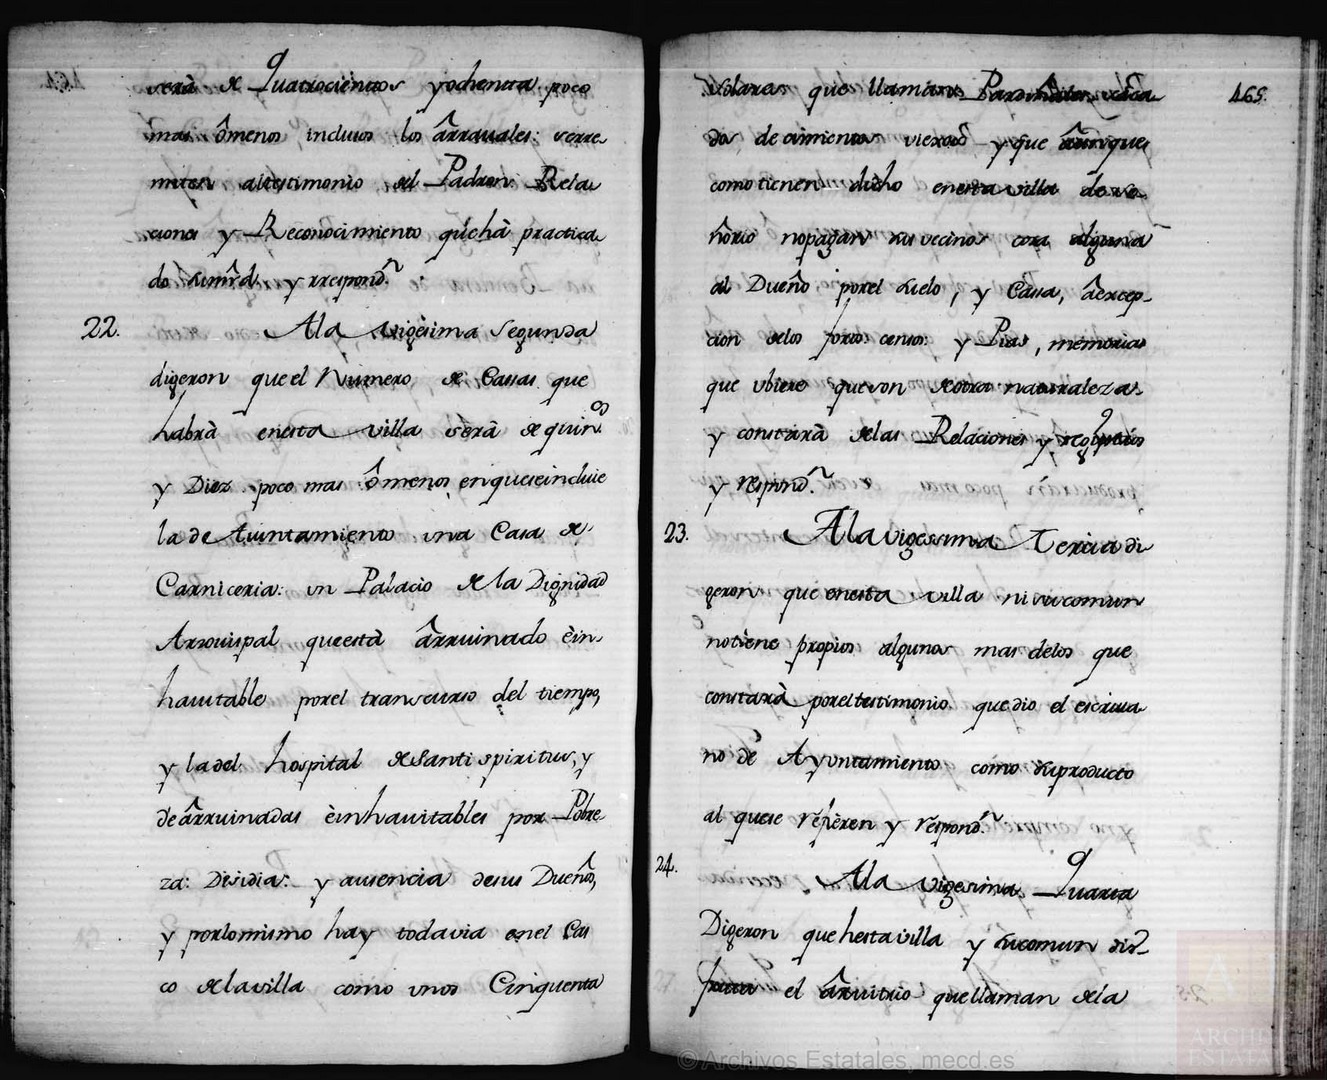 será de Quatrocientos yochenta poco
mas ômenos inclusos los ârravales: serre
miten altestimonio del Padron Rela
ciones y Reconocimiento q̃ehà practica
do sumrd. y rrespondn.
22. Ala vigèsima segunda
digeron que el Numero de Casas que
habrà enesta villa serà de quins.
y Diez poco mas ômenos enqueseincluie
la de Aiuntamiento una Casa de
Carniceria: un Palacio de la Dignidad
Arzovispal queestà ârruinado èin
havitable porel transcurso del tiempo,
y ladel hospital deSanti spiritus, y
deârruinadas èinhavitables por Pobre
za: Desidia: y ausencia desus Dueños,
y porlomismo hay todavia enel Cas
co delavilla como unos Cinquenta
465.
Solares que llaman
dos de cimientos viexos y que âunque
comotienen dicho enesta villa dese
ñorio nopagan sus vecinos cosa alguna
al Dueño porel suelo, y Casa, âexcep
cion delos foros: censos: y Pias, memorias
que ubiere queson deotra naturaleza
y constarà delas Relaciones y
y respondn.
23. Ala vigessima Tercia di
geron que enesta villa ni sucomun
notiene propios algunos mas delos que
constarà poreltestimonio que dio el escriva
no de Ayuntamiento como suproducto
al quese refieren y respondn.
24. Ala vigesima Quarta
Digeron que hestavilla y sucomun dis
fruta el ârvitrio quellaman dela
©Archivos Estatales, mecd.es